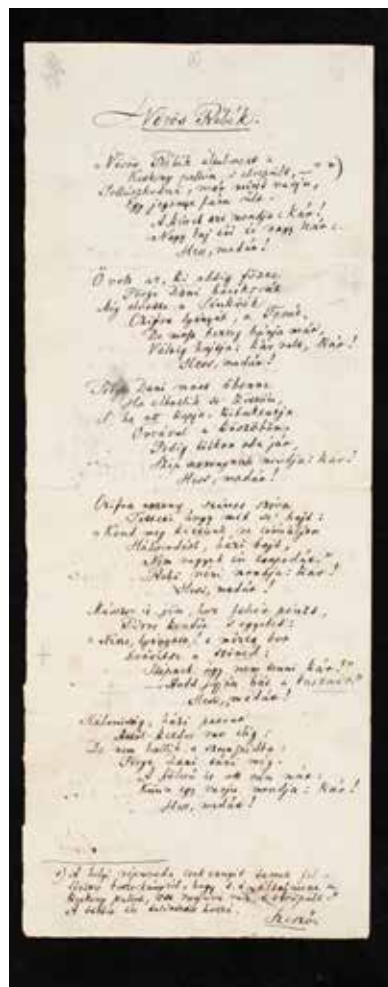 Vörös Rébék.
Vörös Rébék általment a
Keskeny pallón, s elrepült, – *)
Tollászkodni, már mint varju,
Egy jegenye fára ült.
A kinek azt mondja: kár!
Nagy baj éri és nagy kár:
Hess, madár!
Ő volt az, ki addig főzte
Pörge Dani bocskorát
Míg elvette a Sinkóék
Czifra lyányát, a Terát.
De most bezzeg bánja már,
Váltig hajtja: kár volt, kár!
Hess, madár!
Pörge Dani most ő benne
Ha elbotlik se köszön,
S ha ott kapja, kibuktatja
Orrával a küszöbön.
Pedig titkon oda jár,
Szép asszonynak mondja: kár!
Hess, madár!
Czifra asszony színes szóra
Tetteti hogy mit se hajt:
"Kend meg köztünk ne csináljon
Háborodást, házi bajt,
Nem vagyok én csapodár."
Rebi néni mondja: kár!
Hess, madár!
Másszor is jön, hoz fehér pénzt,
Piros kendőt s egyebet:
"Nesze, lyányom! e mézes bor
Erősítse a szíved:
Szépnek úgy nem tenni kár!"
– "Hadd jőjön hát a kasznár."
Hess, madár!
Háboruság, házi patvar
Attól kezdve van elég;
De nem hallik a szomszédba:
Pörge Dani tűri még.
A bölcső is ott van már:
Künn egy varju mondja: kár!
Hess, madár!
*) A helyi néprománcz csak ennyit
boszorkányról, hogy általment a
keskeny pallón, s elrepült."
A többi